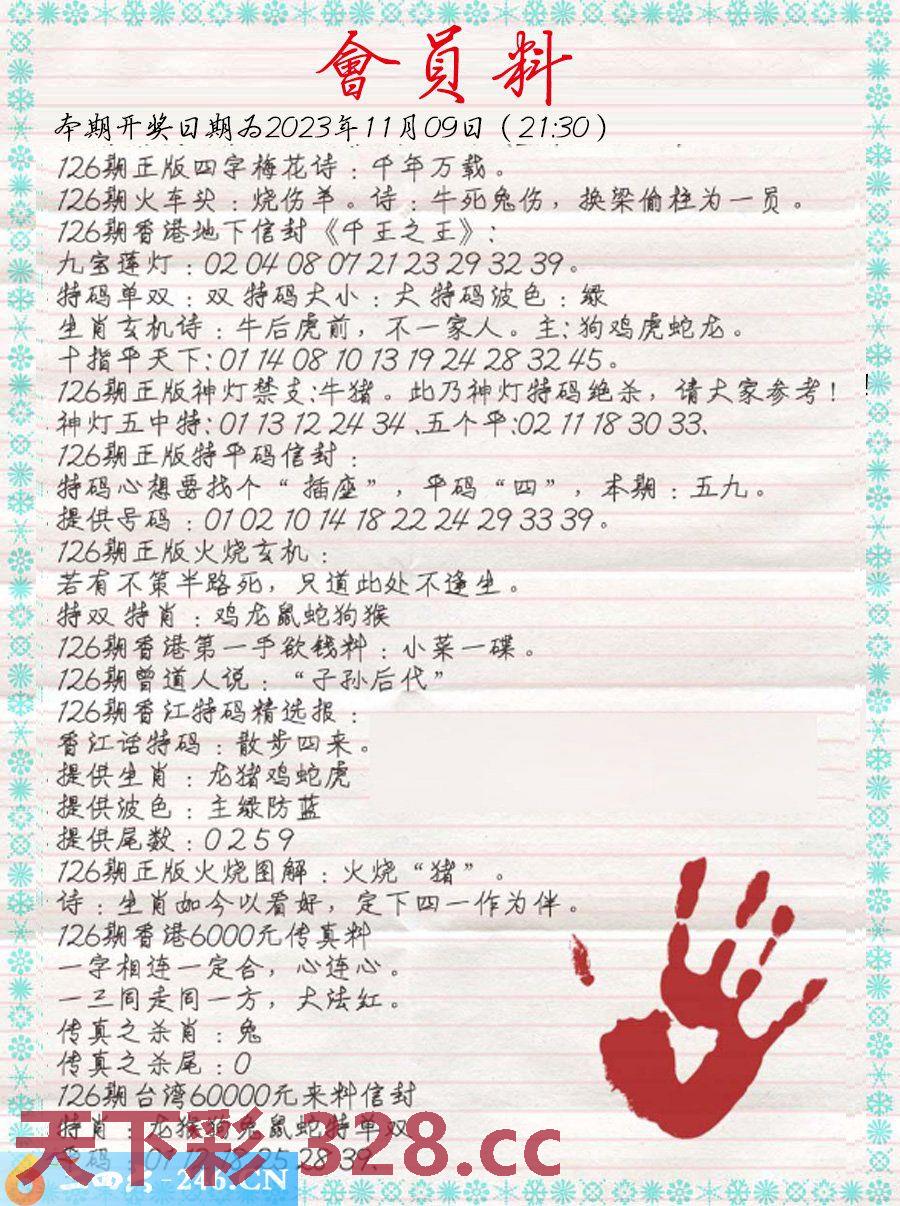 會員料
本期开奖日期为2023年11月09日（21:30）
126期正版四字梅花诗：千年万载。
126期火车头：烧伤羊。诗：牛死兔伤，换梁偷柱为一员。
126期香港地下信封《千王之王》:
九宝莲灯：02 04 08 07 21 23 29 32 39。
特码单双：双 特码大小：大 特码波色：绿
生肖玄机诗：牛后虎前，不一家人。主:狗鸡虎蛇龙。
十指平天下:01 14 08 10 13 19 24 28 32 45。
126期正版神灯禁支:牛猪。此乃神灯特码绝杀，请大家参考！
神灯五中特:01 13 12 24 34、五个平:02 11 18 30 33、
126期正版特平码信封：
特码心想要找个“插座”，平码“四”，本期：五九。
提供号码：01 02 10 14 18 22 24 29 33 39。
126期正版火烧玄机：
若有不策半路死，只道此处不逢生。
特双 特肖：鸡龙鼠蛇狗猴
126期香港第一手欲钱料：小菜一碟。
126期曾道人说：“子孙后代”
126期香江特码精选报：
香江话特码：散步四来。
提供生肖：龙猪鸡蛇虎
提供波色：主绿防蓝
提供尾数：0 2 5 9
126期正版火烧图解：火烧“猪”。
诗：生肖如今以看好，定下四一作为伴。
126期香港6000元传真料
一字相连一定合，心连心。
一三同走同一方，大法红。
传真之杀肖：兔
传真之杀尾：0
126期台湾60000元来料信封
特肖：龙猴狗兔鼠蛇特单双
28 39、
天下彩 328.cc
-246.CN